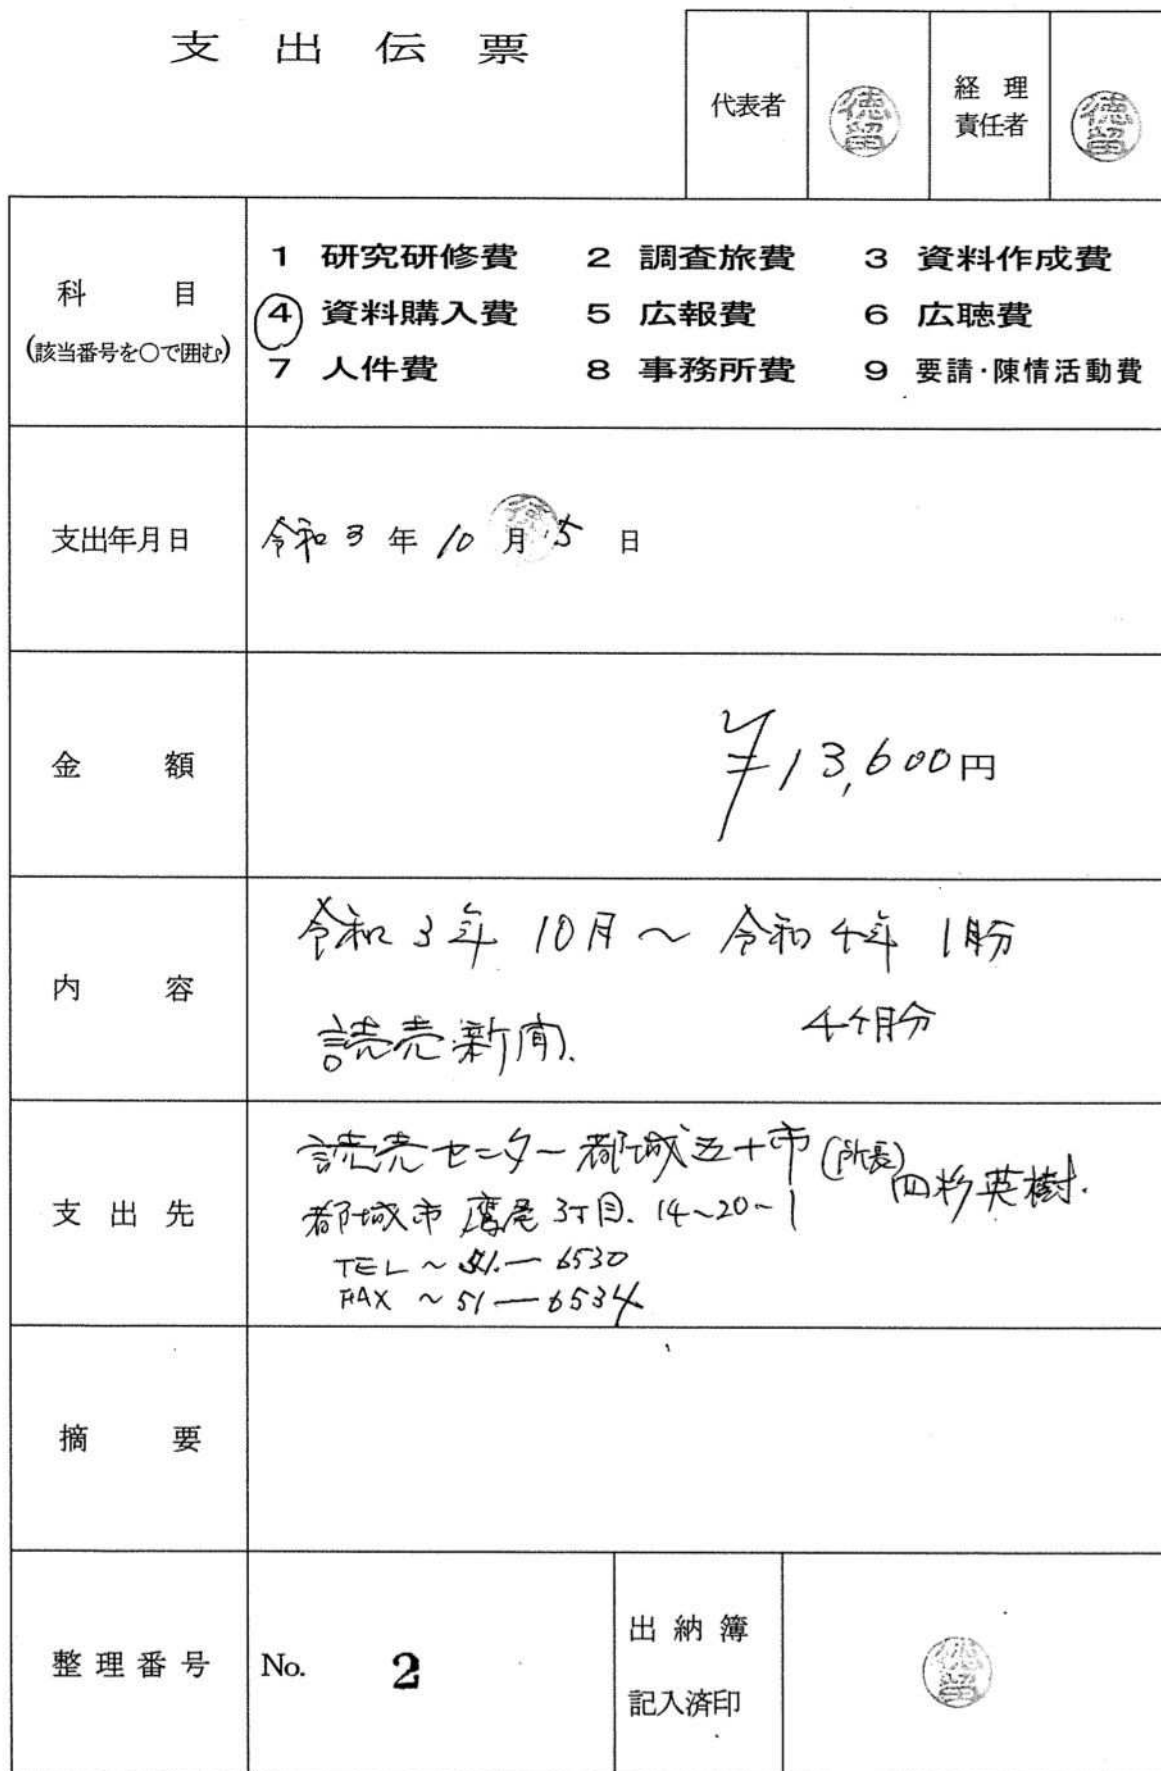 支出伝票
代表者
徳留
経理
責任者
徳留
科目
(該当番号を○で囲む)
1 研究研修費 2 調査旅費 3 資料作成費
4 資料購入費 5 広報費 6 広聴費
7 人件費 8 事務所費 9 要請・陳情活動費
支出年月日
令和3年10月 5日
金額
¥13,600円
内容
令和3年10月～令和4年1月分
読売新聞. 4ヶ月分
支出先
読売センター都城五十市(所長)四杉英樹.
都城市鷹尾3丁目.14～20～1
TEL～51.ー6530
FAX～51ー6534
摘要
整理番号
No. 2
出納簿
記入済印
徳留